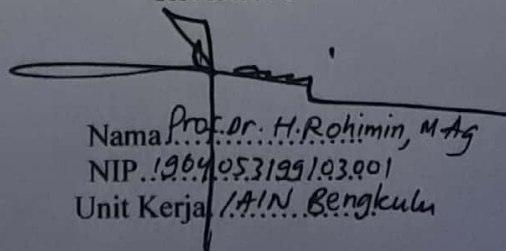 Nama Prof. Dr. H. Rohimin, M Ag
NIP. 196405319910.3.001
Unit Kerja IAIN Bengkulu